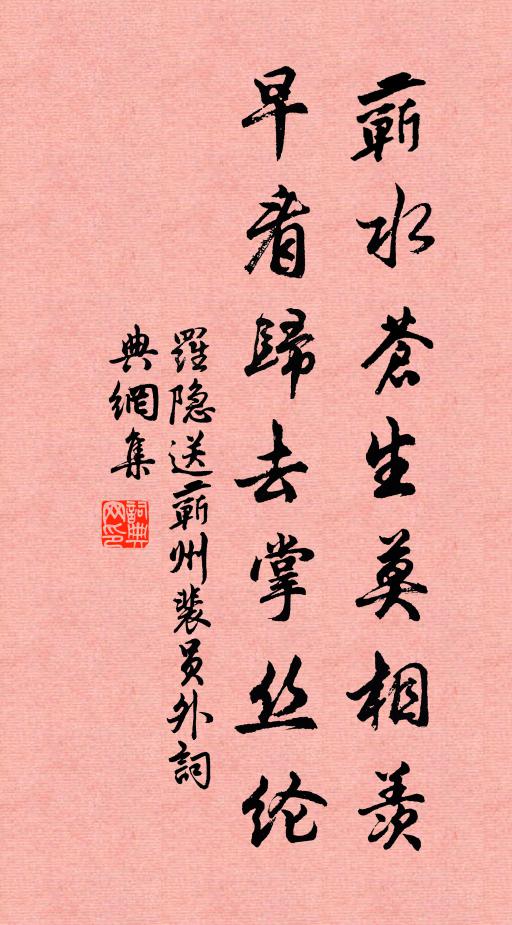 蕲水苍生莫相羡
早看歸去掌丝纶
羅隐送蕲州裴员外詞
典網集
詞典网印